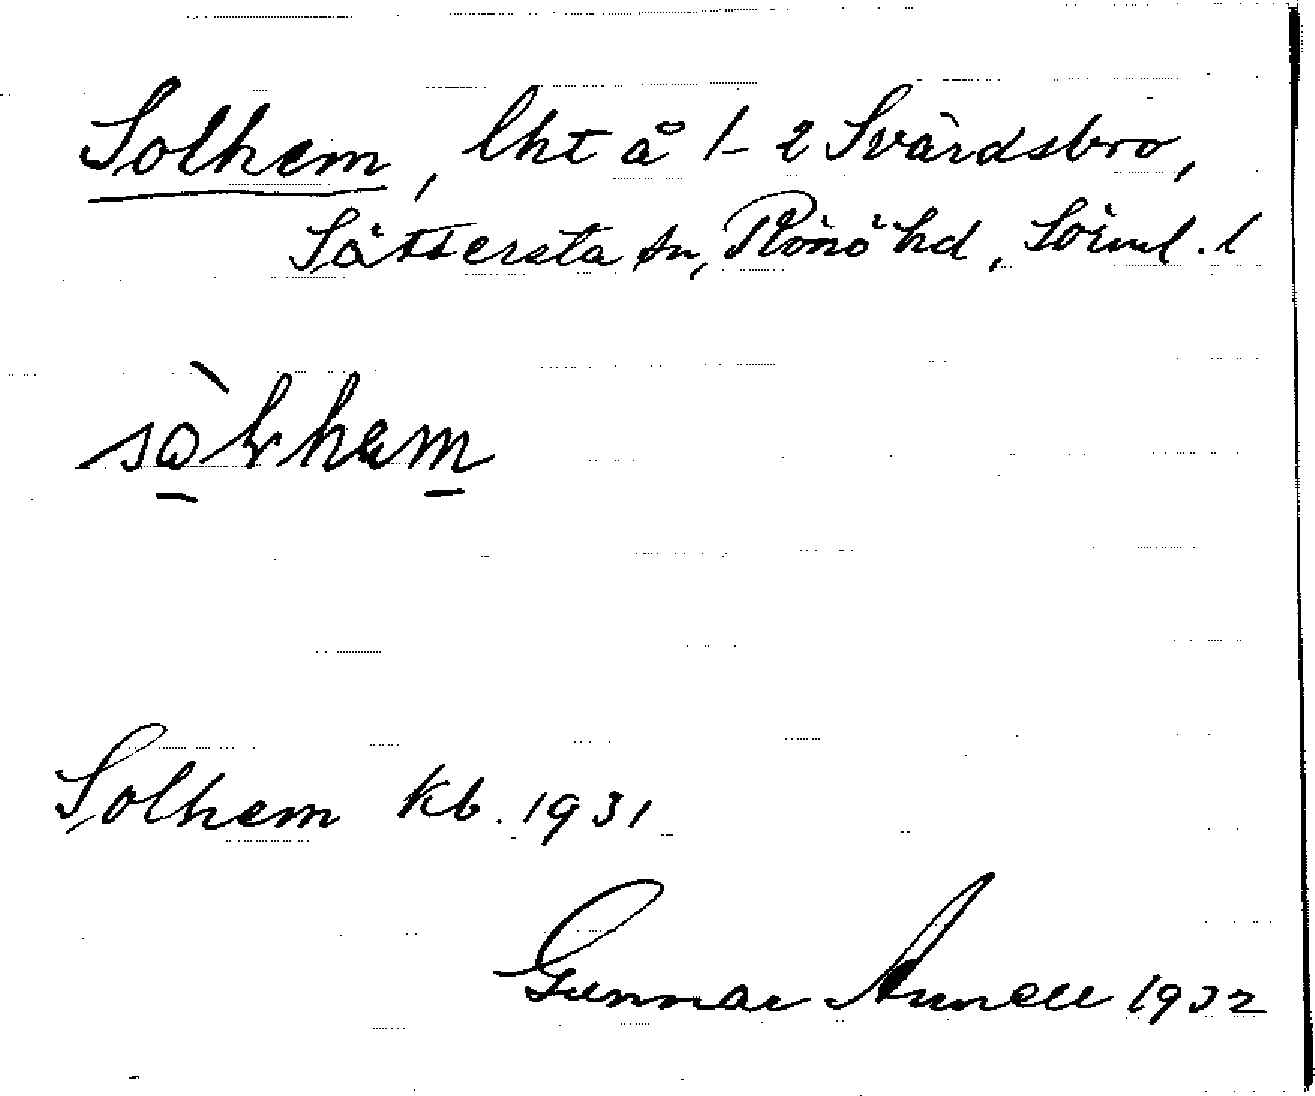 Solhem, lht å 1-2 Svärdsbro,
Sättersta sn, Rönö hd, Söml. l
Solhem kb. 1931
Gunnar Annell 1932